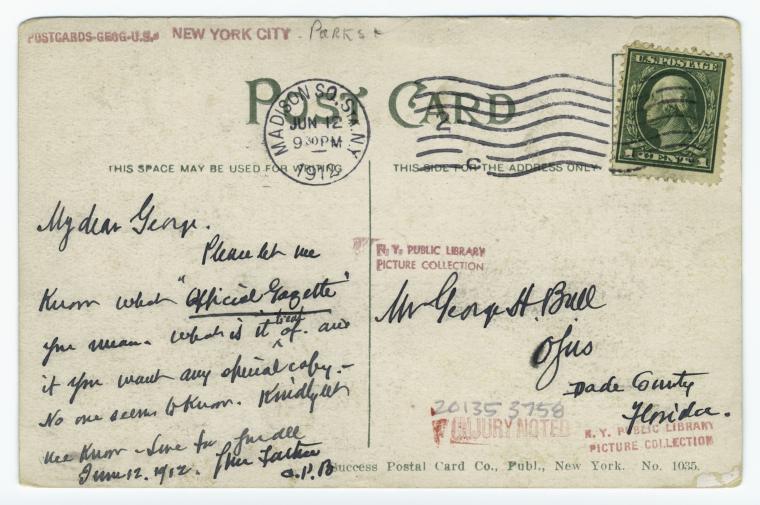 POSTCARDS-GEOG-U.S. NEW YORK CITY - Parks +
POST CARD
MADISON SQ. STA. N.Y.
JUN 12
9 30 PM
1912
2
C
U.S. POSTAGE
1 CENT 1
THIS SPACE MAY BE USED FOR WRITING
THIS SIDE FOR THE ADDRESS ONLY
My dear George.
Please let me
Know what "Official Gazette"
you mean. What is it treat of. and
it you want any special copy.-
No one seems to know. Kindly let
me Know - Love for you all
June 12. 1912. Your Father
C.P.B
N. Y. PUBLIC LIBRARY
PICTURE COLLECTION
Mr George H. Bull
Ojus
Dade County
Florida.
20135 3758
INJURY NOTED
N. Y. PUBLIC LIBRARY
PICTURE COLLECTION
Success Postal Card Co., Publ., New York. No. 1035.